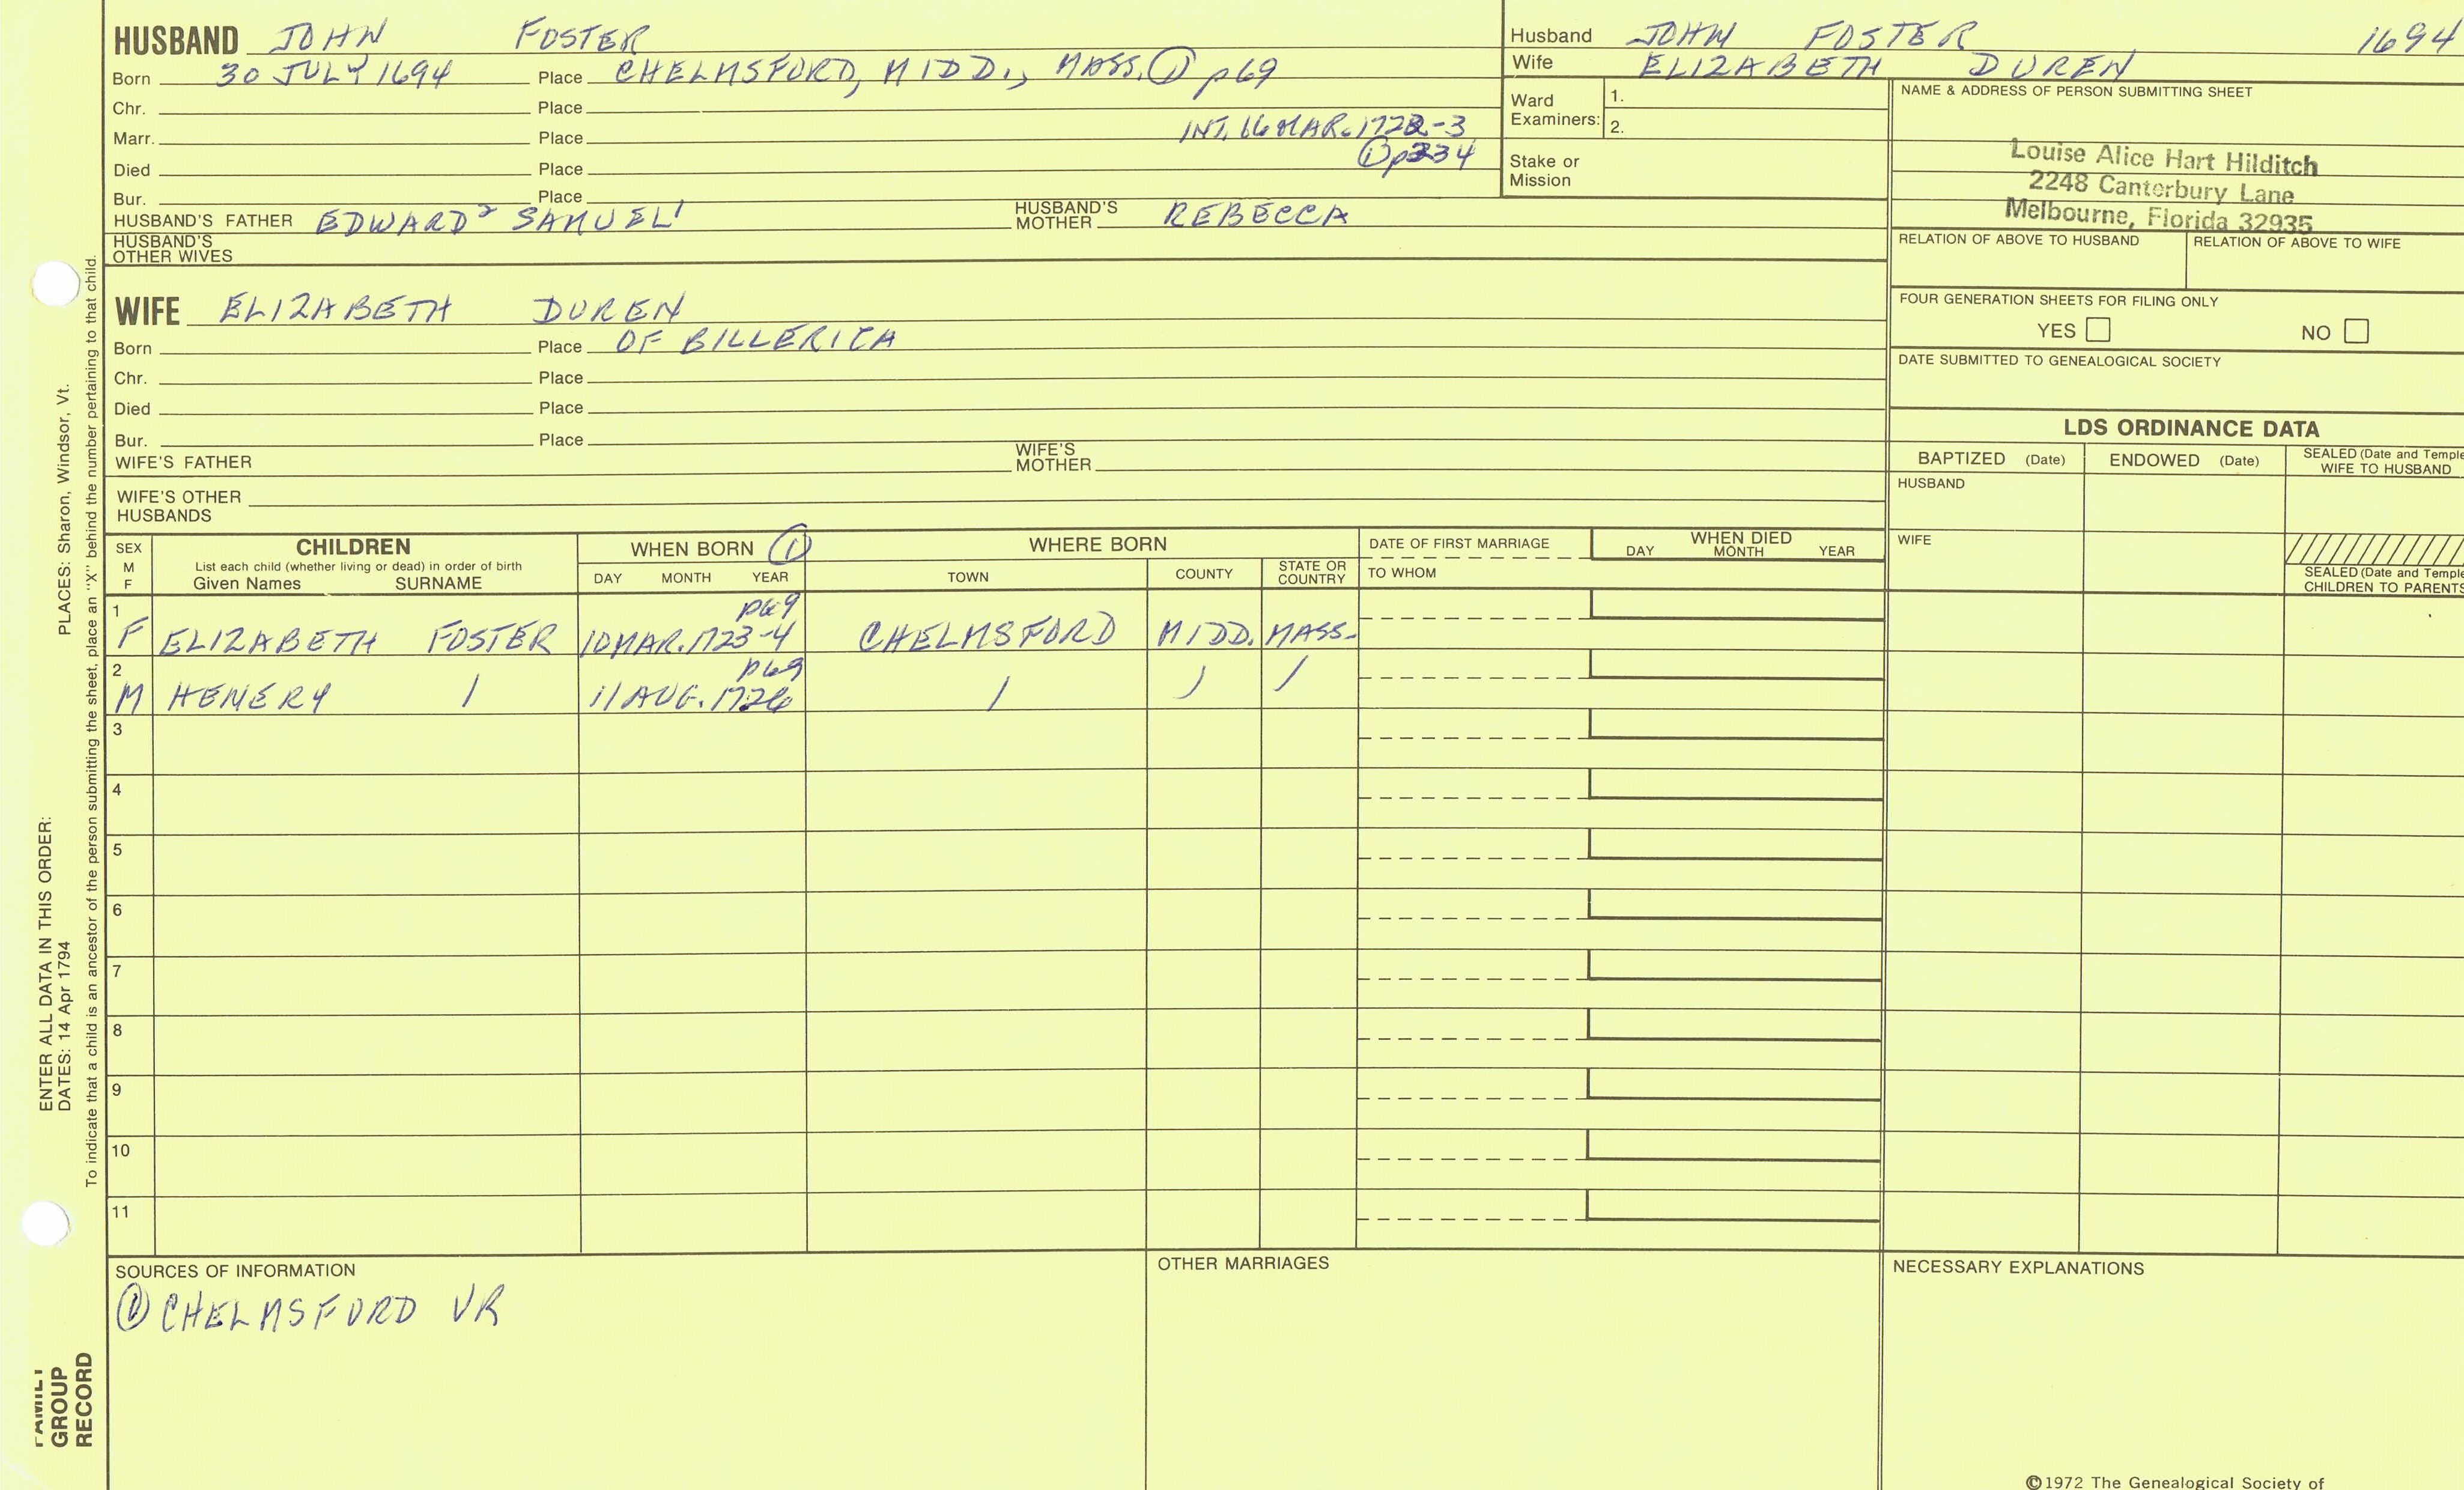 HUSBAND JOHN FOSTER
Born 30 JULY 1694 Place CHELMSFORD, MIDD., MASS. ① p69
Chr. Place
INT. 16 MAR. 1722-3
Marr. Place
① p334
Died Place
Bur. Place
HUSBAND'S FATHER EDWARD² SAMUEL¹ HUSBAND'S MOTHER REBECCA
HUSBAND'S OTHER WIVES
Husband JOHN FOSTER 1694
Wife ELIZABETH DUREN
Ward Examiners: 1.
2.
Stake or Mission
NAME & ADDRESS OF PERSON SUBMITTING SHEET
Louise Alice Hart Hilditch
2248 Canterbury Lane
Melbourne, Florida 32935
RELATION OF ABOVE TO HUSBAND RELATION OF ABOVE TO WIFE
FOUR GENERATION SHEETS FOR FILING ONLY
YES NO
DATE SUBMITTED TO GENEALOGICAL SOCIETY
WIFE ELIZABETH DUREN
Born Place OF BILLERICA
Chr. Place
Died Place
Bur. Place
WIFE'S FATHER WIFE'S MOTHER
WIFE'S OTHER HUSBANDS
LDS ORDINANCE DATA
BAPTIZED (Date) ENDOWED (Date) SEALED (Date and Temple
WIFE TO HUSBAND
HUSBAND
WIFE
SEALED (Date and Temple
CHILDREN TO PARENTS
SEX
M
F
CHILDREN
List each child (whether living or dead) in order of birth
Given Names SURNAME
WHEN BORN ①
DAY MONTH YEAR
WHERE BORN
TOWN COUNTY STATE OR COUNTRY
DATE OF FIRST MARRIAGE
TO WHOM
WHEN DIED
DAY MONTH YEAR
1 p69
F ELIZABETH FOSTER 10 MAR. 1723-4 CHELMSFORD MIDD. MASS.
2 p69
M HENERY / 11 AUG. 1726 / / /
3
4
5
6
7
8
9
10
11
SOURCES OF INFORMATION
① CHELMSFORD VR
OTHER MARRIAGES
NECESSARY EXPLANATIONS
©1972 The Genealogical Society of
PLACES: Sharon, Windsor, Vt.
ENTER ALL DATA IN THIS ORDER:
DATES: 14 Apr 1794
To indicate that a child is an ancestor of the person submitting the sheet, place an "X" behind the number pertaining to that child.
FAMILY
GROUP
RECORD